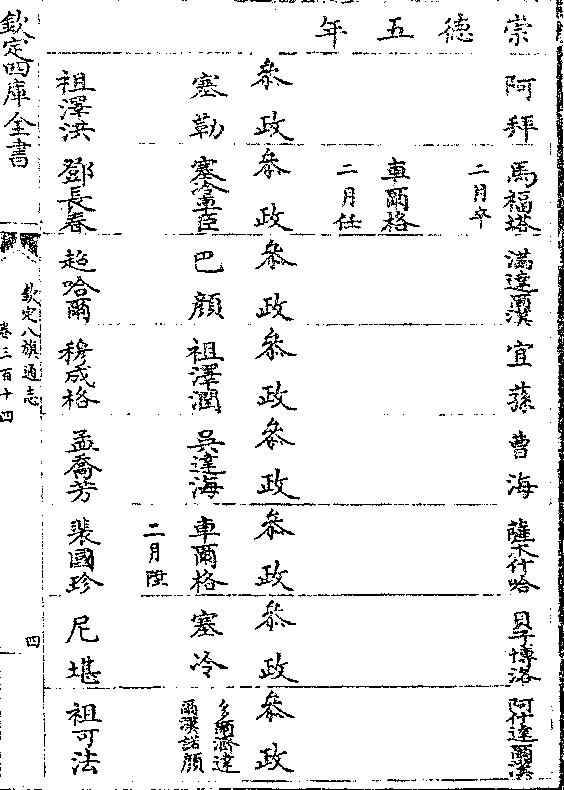 崇德五年
阿拜
馬福塔
二月卒
車爾格
二月任
滿達爾漢
宜蓀
曹海
薩木什哈
貝子博洛
阿什達爾漢
叅政
叅政
叅政
叅政
叅政
叅政
叅政
叅政
塞勒
塞冷車臣
巴顔
祖澤潤
吳達海
車爾格
二月陞
塞冷
多爾濟達
爾漢諾顔
祖澤洪
鄧長春
超哈爾
穆成格
孟喬芳
裴國珍
尼堪
祖可法
欽定四庫全書
欽定八旗通志
卷三百十四
四